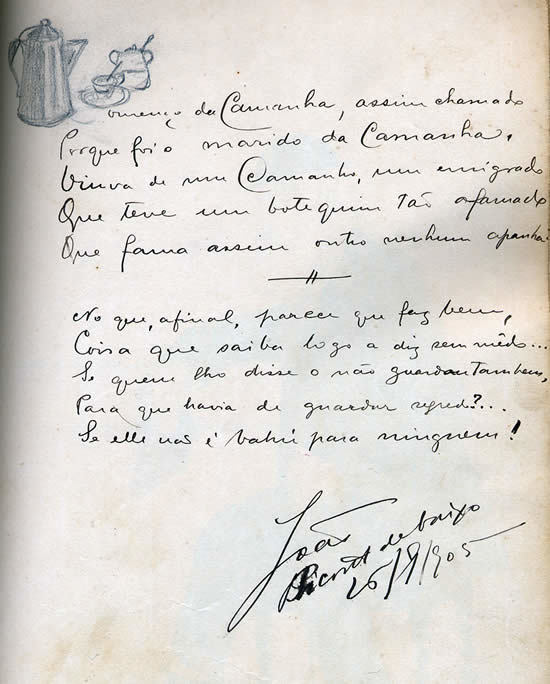 Lourenço da Camanha, assim chamado
Porque foi o marido da Camanha,
Viuva de um Camanho, um emigrado
Que teve um botequim tão afamado
Que fama assim outro nenhum apanha!
No que, afinal, parece que faz bem,
Coisa que saiba logo a diz sem mêdo...
Se quem lho disse o não guardou tambem,
Para que havia de guardar segredo?...
Se elle não é bahú para ninguem!
João
de baixo
26/9/905